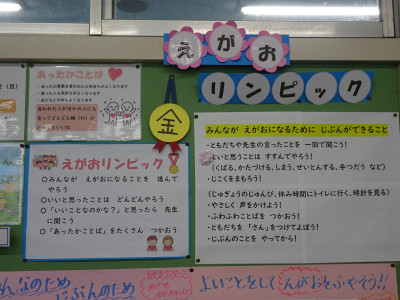 えがお
リンピック
（日）
あったかことば
金
えがおリンピック
○みんなが えがおになることを 進んで
やろう
○いいと思ったことは どんどんやろう
○「いいことなのかな？」と思ったら 先生
に聞こう
○「あったかことば」をたくさん つかおう
みんなが えがおになるために じぶんができること
・ともだちや先生の言ったことを 一回で聞こう！
いいと思うことは すすんでやろう！
（くばる、かたづける、しまう、せいとんする、手つだう など）
・じこくをまもろう！
（じゅぎょうのじゅんび、休み時間にトイレに行く、時計を見る）
・やさしく 声をかけよう！
・ふわふわことばを つかおう！
・ともだちを 「さん」をつけてよぼう！
・じぶんのことを やってから！
んなのため
じぶんのため
よいことをして えがおをふやそう!!